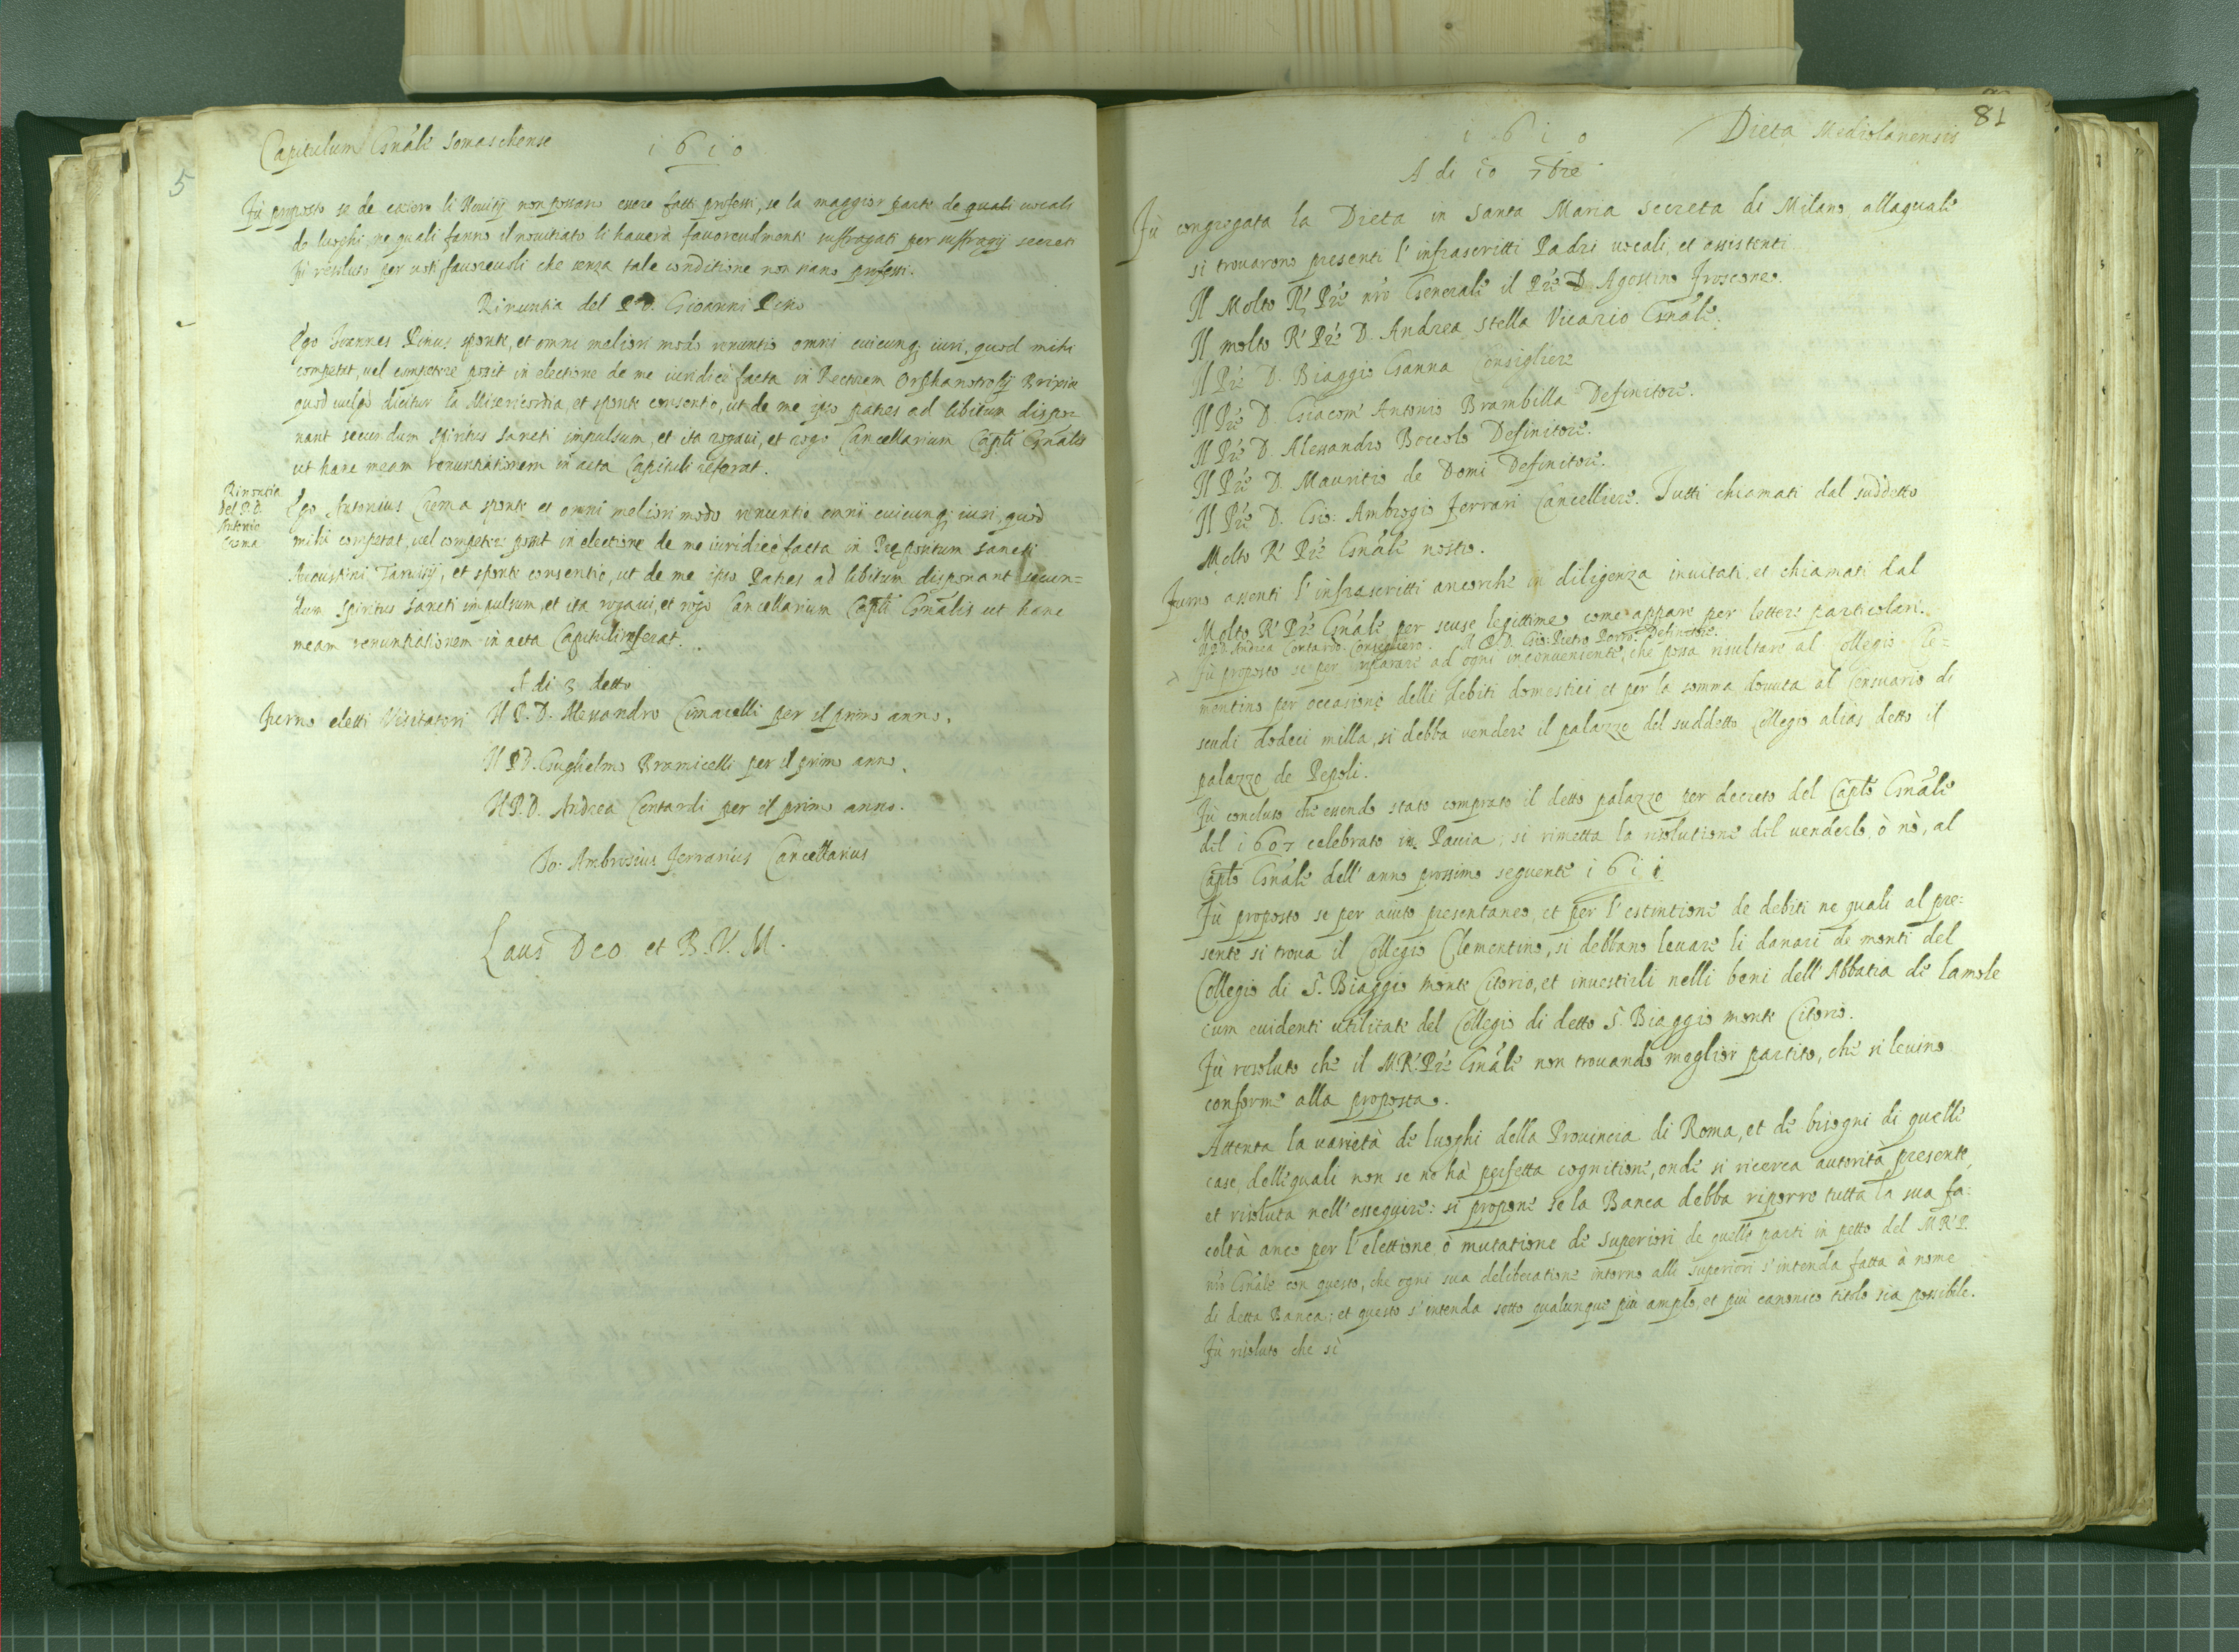 Capitulum Gnale Somaschense 1610
5
Fù proposto se de cætero li Novitij non possano essere fatti professi, se la maggior parte de quali vocali
de luoghi, ne quali fanno il novitiato li haverà favorevolmente suffragati per suffragij secreti
fù resoluto per voti favorevoli che senza tale conditione non siano professi.
Rinuntia del P. D. Gioanni Pino
Ego Joannes Pinus sponte, et omni meliori modo renuntio omni cuicunq; iuri, quod mihi
competat, vel competere possit in electione de me iuridicè facta in Rectorem Orphanotrofij Brixiæ
quod vulgò dicitur la Misericordia, et sponte consentio, ut de me ipso patres ad libitum dispo-
nant secundum spiritus sancti impulsum, et ita rogavi, et rogo Cancellarium Capli Gnalis
ut hanc meam renuntiationem in acta Capituli referat.
Rinontia
del P. D.
Antonio
Crema
Ego Antonius Crema sponte et omni meliori modo renuntio omni cuicunq; iuri, quod
mihi competat, vel competere possit in electione de me iuridicè facta in Præpositum Sancti
Augustini Tarvisij, et sponte consentio, ut de me ipso Patres ad libitum disponant secun=
dum spiritus Sancti impulsum, et ita rogavi, et rogo Cancellarium Capli Gnalis ut hanc
meam renuntiationem in acta Capituli referat.
A di 3 detto
Furno eletti Visitatori Il P. D. Alessandro Cimarelli per il primo anno.
Il P. D. Guglielmo Bramicelli per il primo anno.
Il P. D. Andrea Contardi per il primo anno.
Jo: Ambrosius Ferrarius Cancellarius
Laus Deo et B. V. M.
81
1610 Dieta Mediolanensis
A di 10 7bre
Fù congregata la Dieta in Santa Maria Secreta di Milano, alla quale
si trovarono presenti l'infrascritti Padri vocali, et assistenti
Il Molto R. Pre nro Generale il Pre D. Agostino Froscone.
Il molto R. Pre D. Andrea Stella Vicario Gnale.
Il Pre D. Biaggio Ganna Consigliere
Il Pre D. Giacom' Antonio Brambilla Definitore.
Il Pre D. Alessandro Boccolo Definitore.
Il Pre D. Mauritio de Domi Definitore.
Il Pre D. Gio: Ambrogio Ferrari Cancelliere. Tutti chiamati dal suddetto
Molto R. Pre Gnale nostro.
Furno assenti l'infrascritti ancorche in diligenza invitati, et chiamati dal
Molto R. Pre Gnale per scuse legittime come appare per lettere particolari.
Il P. D. Andrea Contardo Consegliero. Il P. D. Gio: Pietro Porro Definitore.
Fù proposto se per riparare ad ogni inconveniente, che possa risultare al Collegio Cle-
mentino per occasione delli debiti domestici, et per la somma dovuta al Censuario di
scudi dodeci milla, si debba vendere il palazzo del suddetto Collegio alias detto il
palazzo de Pepoli.
Fù concluso che essendo stato comprato il detto palazzo per decreto del Caplo Gnale
del 1607 celebrato in Pavia, si rimetta la risolutione del venderlo, ò nò, al
Caplo Gnale dell' anno prossimo seguente 1611.
Fù proposto se per aiuto presentaneo, et per l'estintione de debiti ne quali al pre:
sente si trova il Collegio Clementino, si debbano levare li danari de monti del
Collegio di S. Biaggio Monte Citorio, et investirli nelli beni dell' Abbatia de lamole
cum evidenti utilitate del Collegio di detto S. Biaggio monte Citorio.
Fù resoluto che il M. R. Pre Gnale non trovando meglior partito, che si levino
conforme alla proposta.
Attenta la varietà de luoghi della Provincia di Roma, et de bisogni di quelle
case, delle quali non se ne hà perfetta cognitione, onde si ricerca autorità presente,
et risoluta nell' esseguire: si propone se la Banca debba riporre tutta la sua fa-
coltà anco per l'elettione, ò mutatione de superiori de quelle parti in petto del M. R. P.
nro Gnale con questo, che ogni sua deliberatione intorno alli superiori s'intenda fatta à nome
di detta Banca; et questo s'intenda sotto qualunque più amplo, et più canonico titolo sia possibile.
Fù risoluto che sì